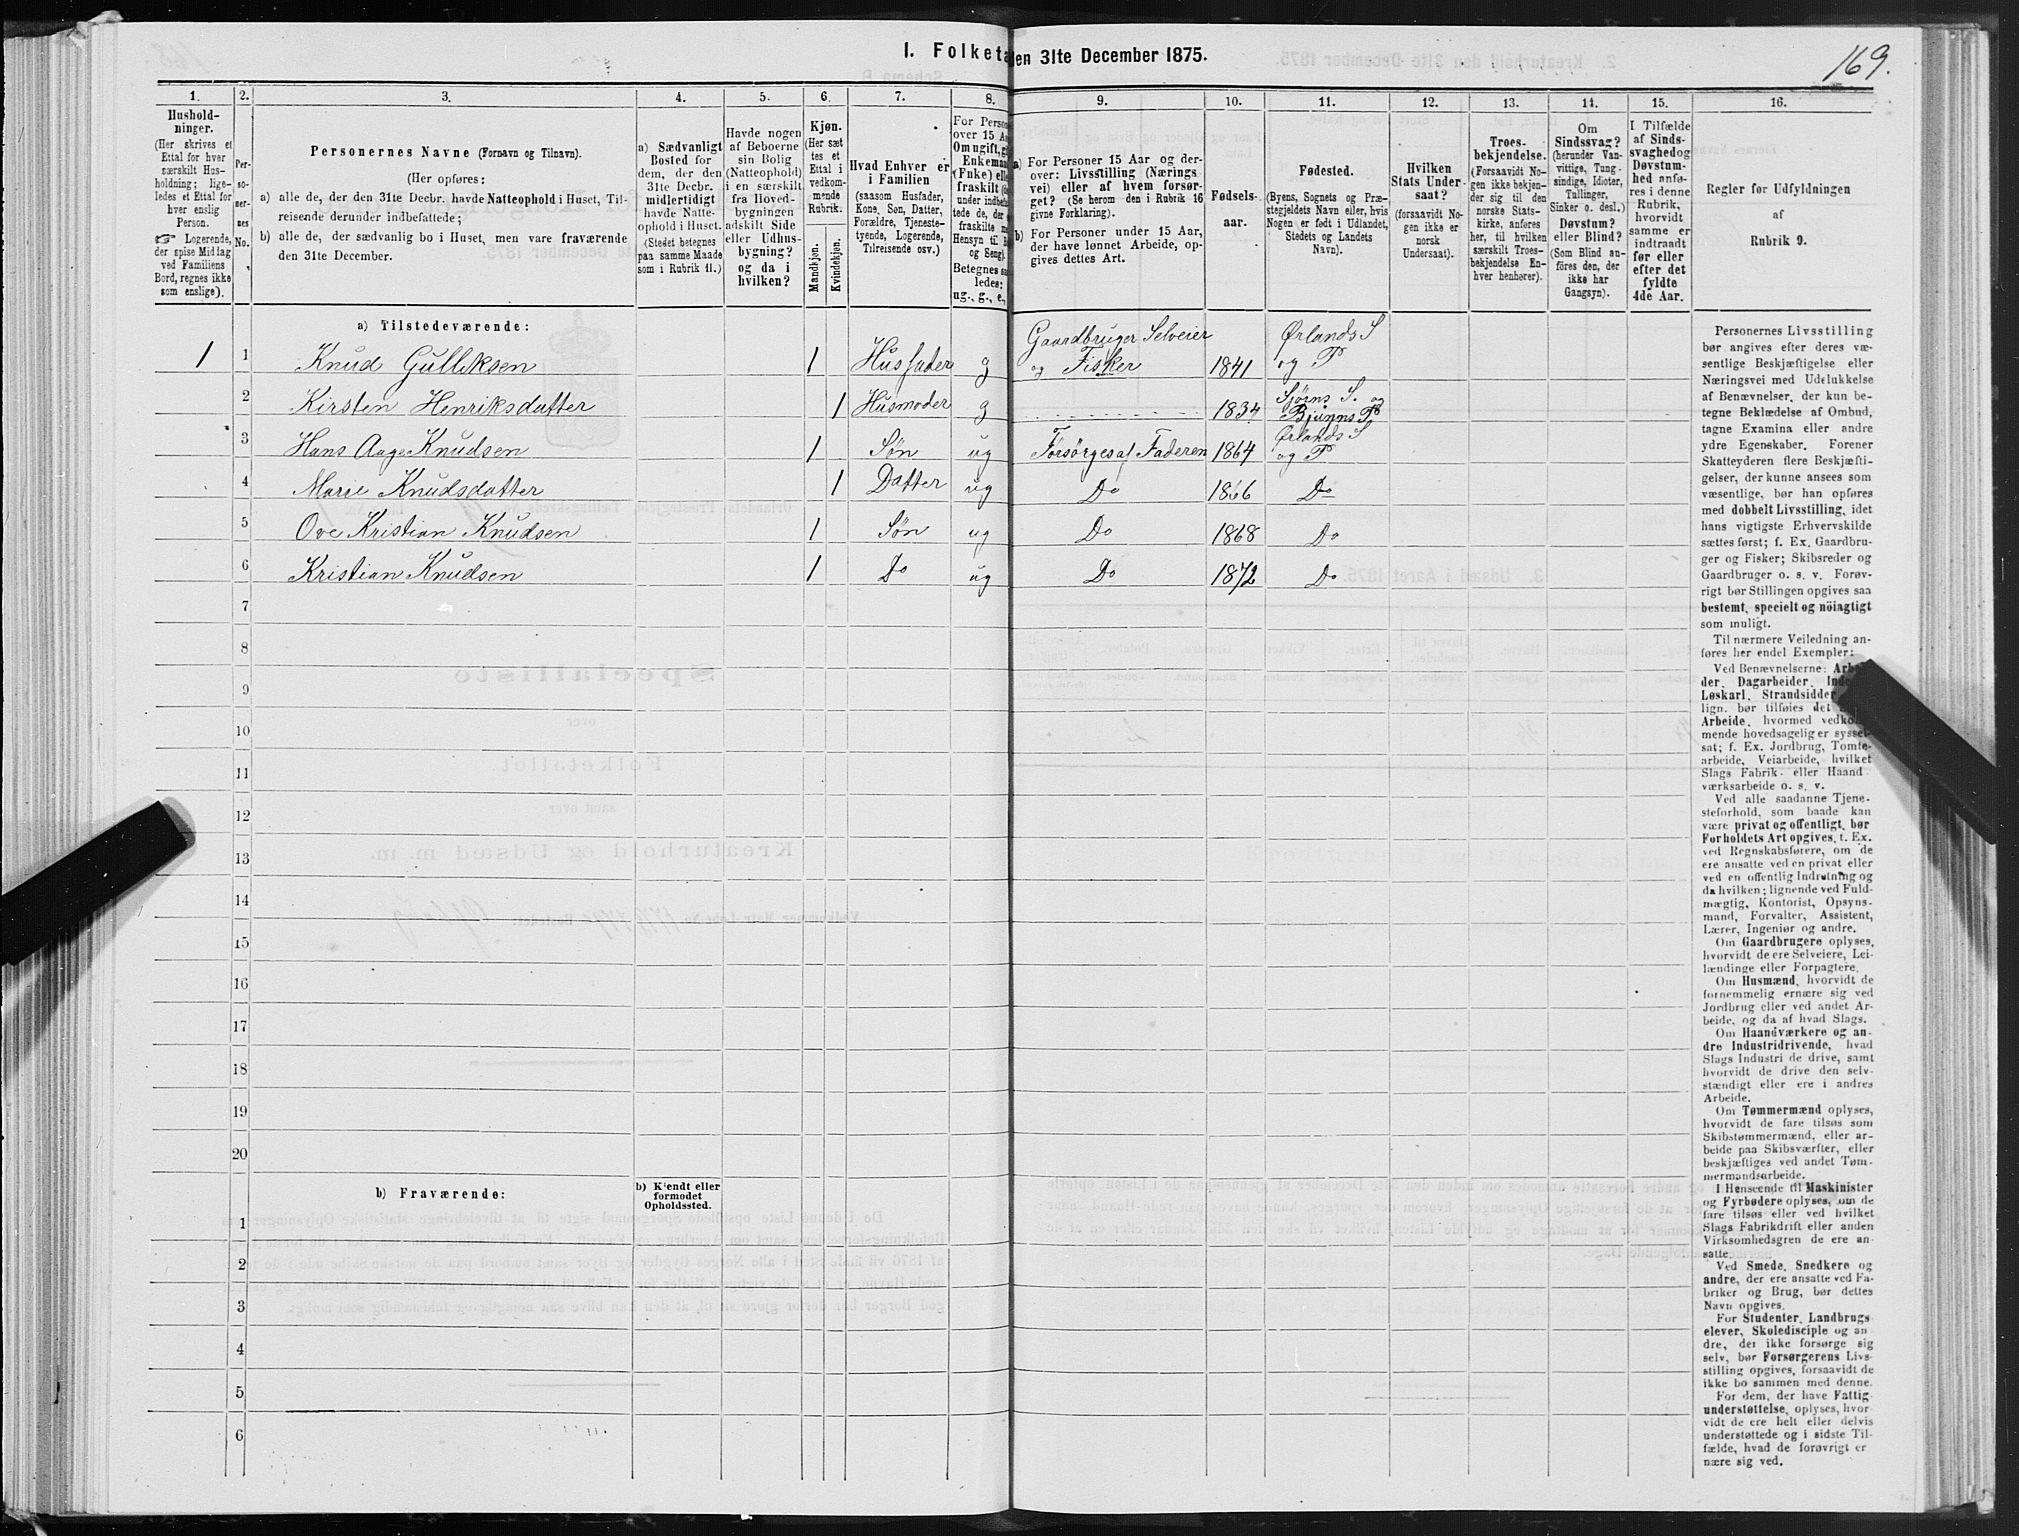 169.
I. Folketa
den 31te December 1875.
1. 2. 3. 4. 5. 6. 7. 8. 9. 10. 11. 12. 13. 14. 15. 16.
Hushold-
ninger.
(Her skrives et
Ettal for hver
særskilt Hus-
holdning; lige-
ledes et Ettal for
hver enslig
Person.
☞ Logerende,
der spise Middag
ved Familiens
Bord, regnes ikke
som enslige).
Per-
so-
ner-
nes
No.
Personernes Navne (Fornavn og Tilnavn).
(Her opføres:
a) alle de, der den 31te Decbr. havde Natteophold i Huset, Til-
reisende derunder indbefattede;
b) alle de, der sædvanlig bo i Huset, men vare fraværende
den 31te December.
a) Sædvanligt
Bosted for
dem, der den
31te Decbr.
midlertidigt
havde Natte-
ophold i Huset.
(Stedet betegnes
paa samme Maade
som i Rubrik 11.)
Havde nogen
af Beboerne
sin Bolig
(Natteophold)
i en særskilt
fra Hoved-
bygningen
adskilt Side
eller Udhus-
bygning?
og da i
hvilken?
Kjøn.
(Her sæt-
tes et
Ettal i
vedkom-
mende
Rubrik.
Mandkjøn.
Kvindekjøn.
Hvad Enhver er
i Familien
(saasom Husfader,
Kone, Søn, Datter,
Forældre, Tjeneste-
tyende, Logerende,
Tilreisende osv.)
For Person
over 15 Aa
Om ugift, g
Enkeman
(Enke) elle
fraskilt (u
under indbe
tede de, der
fraskilte m
Hensyn til B
og Seng).
Betegnes sa
ledes:
ug., g., e.,
a) For Personer 15 Aar og der-
over: Livsstilling (Nærings-
vei) eller af hvem forsør-
get? (Se herom den i Rubrik 16
givne Forklaring).
b) For Personer under 15 Aar,
der have lønnet Arbeide, op-
gives dettes Art.
Fødsels-
aar.
Fødested.
(Byens, Sognets og Præ-
stegjeldets Navn eller, hvis
Nogen er født i Udlandet,
Stedets og Landets
Navn).
Hvilken
Stats Under-
saat?
(forsaavidt No-
gen ikke er
norsk
Undersaat).
Troes-
bekjendelse.
(Forsaavidt No-
gen ikke bekjen-
der sig til den
norske Stats-
kirke, anføres
her, til hvilken
særskilt Troes-
bekjendelse En-
hver henhører).
Om
Sindssvag?
(herunder Van-
vittige, Tung-
sindige, Idioter,
Tullinger,
Sinker o. desl.)
Døvstum?
eller Blind?
(Som Blind an-
føres den, der
ikke har
Gangsyn).
I Tilfælde
af Sinds-
svaghed og
Døvstum-
hed anfø-
res i denne
Rubrik,
hvorvidt
samme er
indtraadt
før eller
efter det
fyldte
4de Aar.
Regler før Udfyldningen
af
Rubrik 9.
a) Tilstedeværende:
1 1 Knud Gulliksen 1 Husfader g Gaardbruger Selveier og Fisker 1841 Ørlands S og P
2 Kirsten Henriksdatter 1 Husmoder g 1834 S. og P
3 Hans Aage Knudsen 1 Søn ug Forsørges af Faderen 1864 Ørlands S og P
4 Marie Knudsdatter 1 Datter ug Do 1866 Do
5 Ove Kristian Knudsen 1 Søn ug Do 1868 Do
6 Kristian Knudsen 1 Do ug Do 1872 Do
7
8
9
10
11
12
13
14
15
16
17
18
19
20
b) Fraværende:
b) Kjendt eller
formodet
Opholdssted.
1
2
3
4
5
6
Personernes Livsstilling
bør angives efter deres væ-
sentlige Beskjæftigelse eller
Næringsvei med Udelukkelse
af Benævnelser, der kun be-
tegne Beklædelse af Ombud,
tagne Examina eller andre
ydre Egenskaber. Forener
Skatteyderen flere Beskjæfti-
gelser, der kunne ansees som
væsentlige, bør han opføres
med dobbelt Livsstilling, idet
hans vigtigste Erhvervskilde
sættes først; f. Ex. Gaardbru-
ger og Fisker; Skibsreder og
Gaardbruger o. s. v. Forøv-
rigt bør Stillingen opgives saa
bestemt, specielt og nöiagtigt
som muligt.
Til nærmere Veiledning an-
føres her endel Exempler:
Ved Benævnelserne: Arbei
der, Dagarbeider, Inde
Løskarl, Strandsidder
lign. bør tilføies det
Arbeide, hvormed vedkom-
mende hovedsagelig er syssel-
sat; f. Ex. Jordbrug, Tomte-
arbeide, Veiarbeide, hvilket
Slags Fabrik- eller Haand-
værksarbeide o. s. v.
Ved alle saadanne Tjene-
steforhold, som baade kan
være privat og offentligt, bør
Forholdets Art opgives, t. Ex.
ved Regnskabsførere, om de
ere ansatte ved en privat eller
ved en offentlig Indretning og
da hvilken; lignende ved Fuld-
mægtig, Kontorist, Opsyns-
mand, Forvalter, Assistent,
Lærer, Ingeniør og andre.
Om Gaardbrugere oplyses,
hvorvidt de ere Selveiere, Lei-
lændinge eller Forpagtere.
Om Husmænd, hvorvidt de
fornemmelig ernære sig ved
Jordbrug eller ved andet Ar-
beide, og da af hvad Slags.
Om Haandværkere og an-
dre Industridrivende, hvad
Slags Industri de drive, samt
hvorvidt de drive den selv-
stændigt eller ere i andres
Arbeide.
Om Tømmermænd oplyses,
hvorvidt de fare tilsøs som
Skibstømmermænd, eller ar-
beide paa Skibsværfter, eller
beskjæftiges ved andet Tøm-
mermandsarbeide.
I Henseende til Maskinister
og Fyrbødere oplyses, om de
fare tilsøs eller ved hvilket
Slags Fabrikdrift eller anden
Virksomhedsgren de ere an-
satte.
Ved Smede, Snedkere og
andre, der ere ansatte ved Fa-
briker og Brug, bør dettes
Navn opgives.
For Studenter, Landbrugs-
elever, Skoledisciple og an-
dre, der ikke forsørge sig
selv, bør Forsørgerens Livs-
stilling opgives, forsaavidt de
ikke bo sammen med denne.
For dem, der have Fattig-
understøttelse, oplyses, hvor-
vidt de ere helt eller delvis
understøttede og i sidste Til-
fælde, hvad de forøvrigt er-
nære sig ved.